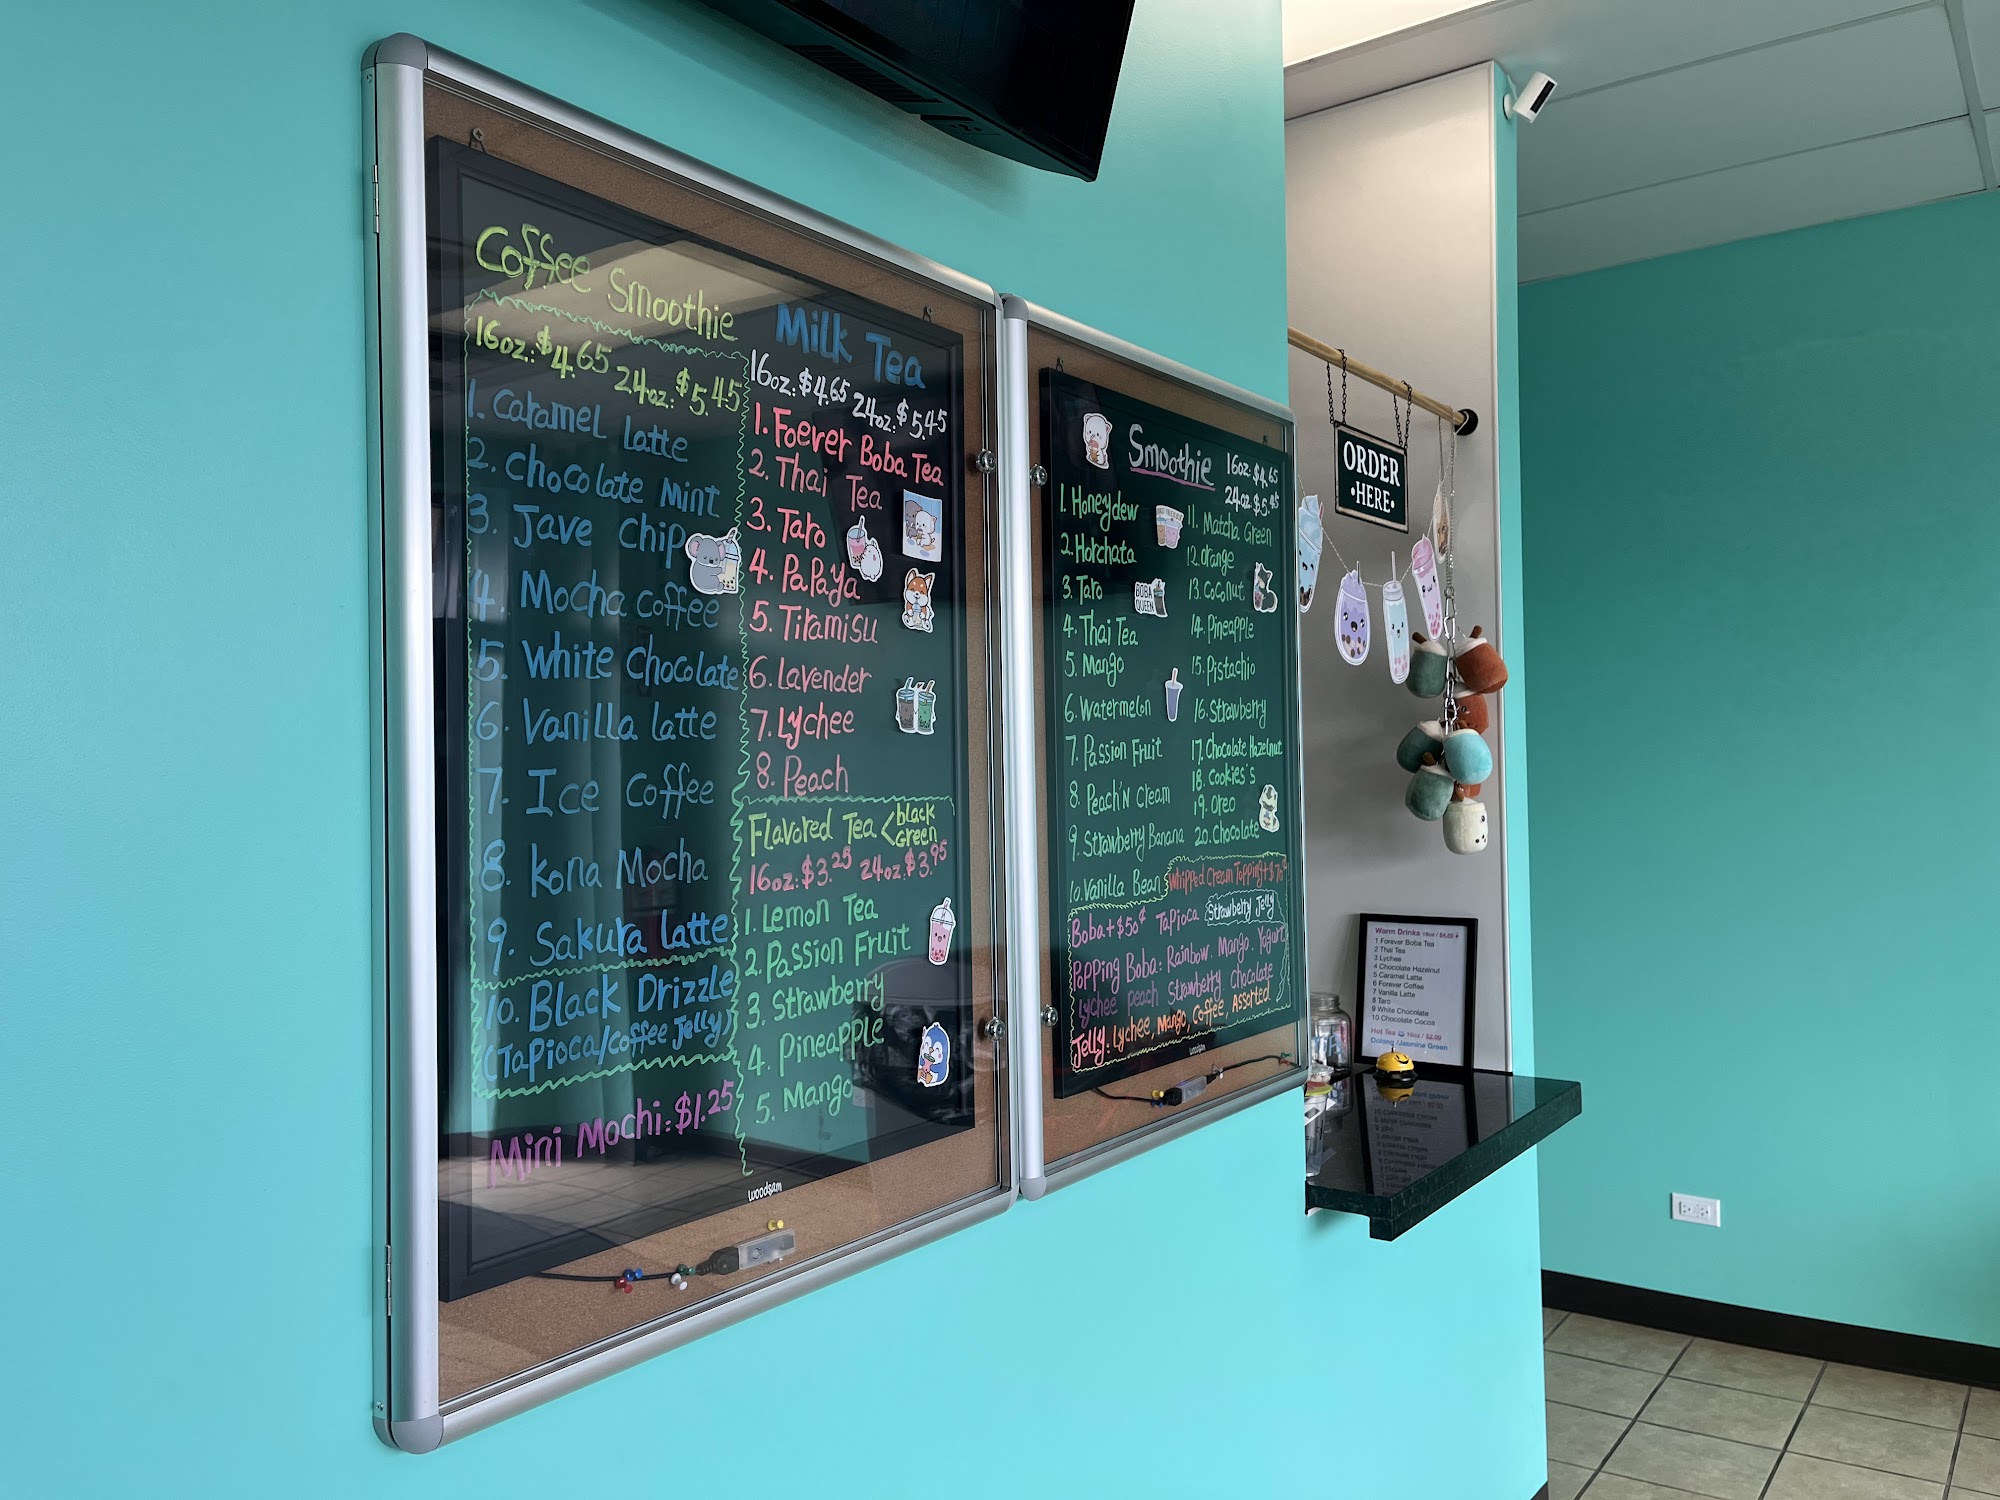 Coffee Smoothie
16oz: $4.65 24oz: $5.45
1. Caramel latte
2. Chocolate mint
3. Jave Chip
4. Mocha coffee
5. White Chocolate
6. Vanilla latte
7. Ice coffee
8. Kona Mocha
9. Sakura latte
10. Black Drizzle
(Tapioca/coffee Jelly)
Mini Mochi: $1.25
Milk Tea
16oz: $4.65 24oz: $5.45
1. Foever Boba Tea
2. Thai Tea
3. Taro
4. Papaya
5. Tiramisu
6. Lavender
7. Lychee
8. Peach
Flavored Tea < black
Green
16oz: $3.25 24oz: $3.95
1. Lemon Tea
2. Passion Fruit
3. Strawberry
4. Pineapple
5. Mango
woodsam
Smoothie
16oz: $4.65
24oz: $5.45
1. Honeydew
2. Horchata
3. Taro
4. Thai Tea
5. Mango
6. Watermelon
7. Passion Fruit
8. Peach'N Cream
9. Strawberry Banana
10. Vanilla Bean
11. Matcha Green
12. Orange
13. Coconut
14. Pineapple
15. Pistachio
16. Strawberry
17. Chocolate Hazelnut
18. Cookies's
19. Oreo
20. Chocolate
BOBA
QUEEN
Whipped Cream Topping+$
Boba+$50¢ Tapioca Strawberry Jelly
Popping Boba: Rainbow. Mango. Yogurt
Lychee peach Strawberry chocolate
Jelly: Lychee, Mango, Coffee, Assorted
woodsam
ORDER
•HERE•
Warm Drinks 16oz / $4.65
1 Forever Boba Tea
2 Thai Tea
3 Lychee
4 Chocolate Hazelnut
5 Caramel Latte
6 Forever Coffee
7 Vanilla Latte
8 Taro
9 White Chocolate
10 Chocolate Cocoa
Hot Tea 16oz / $2.00
Oolong /Jasmine Green